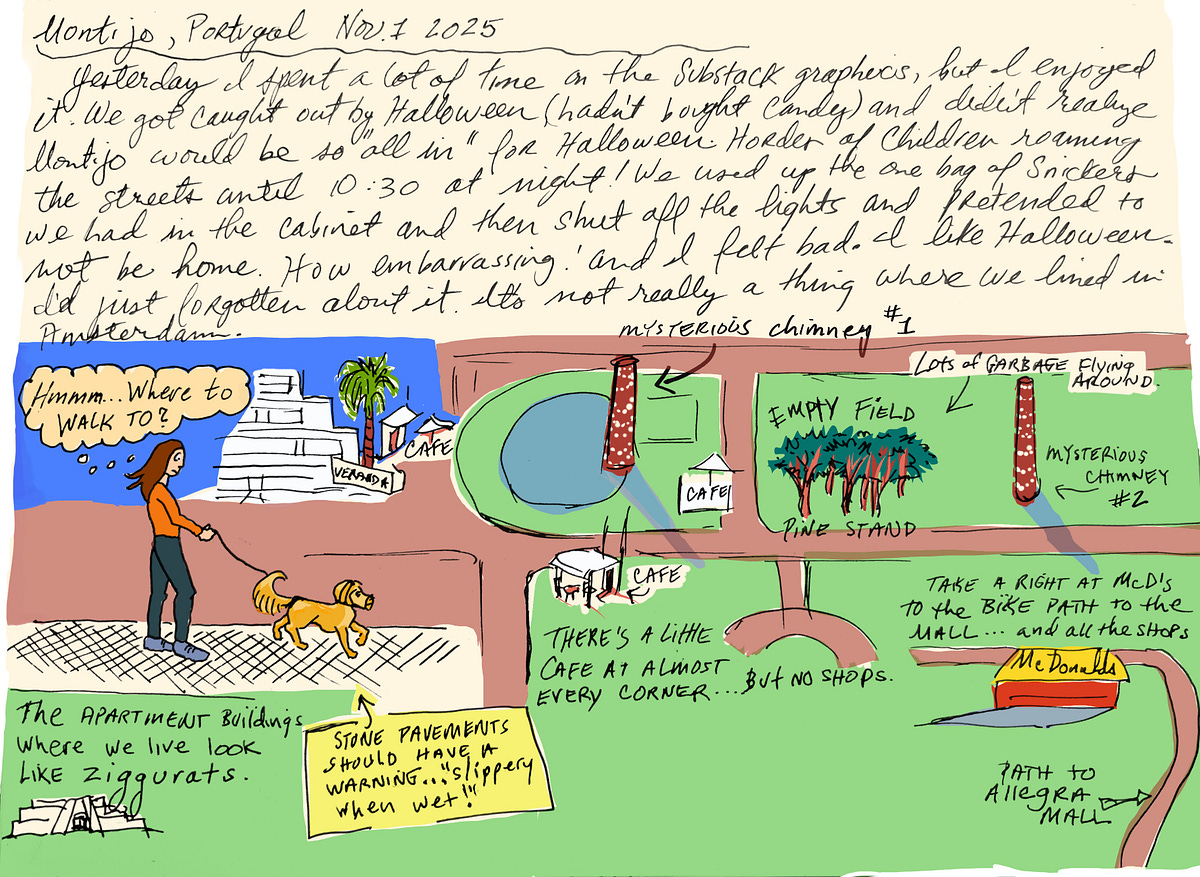 Montijo, Portugal Nov. 1 2025
Yesterday I spent a lot of time on the Substack graphics, but I enjoyed
it. We got caught out by Halloween (hadn't bought candy) and didn't realize
Montijo would be so "all in" for Halloween. Hordes of Children roaming
the streets until 10:30 at night! We used up the one bag of Snickers
we had in the cabinet and then shut off the lights and pretended to
not be home. How embarrassing! and I felt bad. I like Halloween.
I'd just forgotten about it. It's not really a thing where we lived in
Amsterdam.
MYSTERIOUS chimney #1
Hmmm... Where to
WALK TO?
VERANDA
CAFE
CAFE
CAFE
Lots of GARBAGE Flying
AROUND.
EMPTY FIELD
PINE STAND
MYSTERIOUS
CHIMNEY
#2
THERE'S A LITTLE
CAFE AT ALMOST
EVERY CORNER.... BUT NO SHOPS.
TAKE A RIGHT AT McD's
TO the BIKE PATH to the
MALL... and all the SHOPS
McDonalds
PATH TO
AllEGRA
MALL
The APARTMENT Buildings
where we live look
LIKE ziggurats.
STONE PAVEMENTS
SHOULD HAVE A
WARNING..."slippery
when wet!"